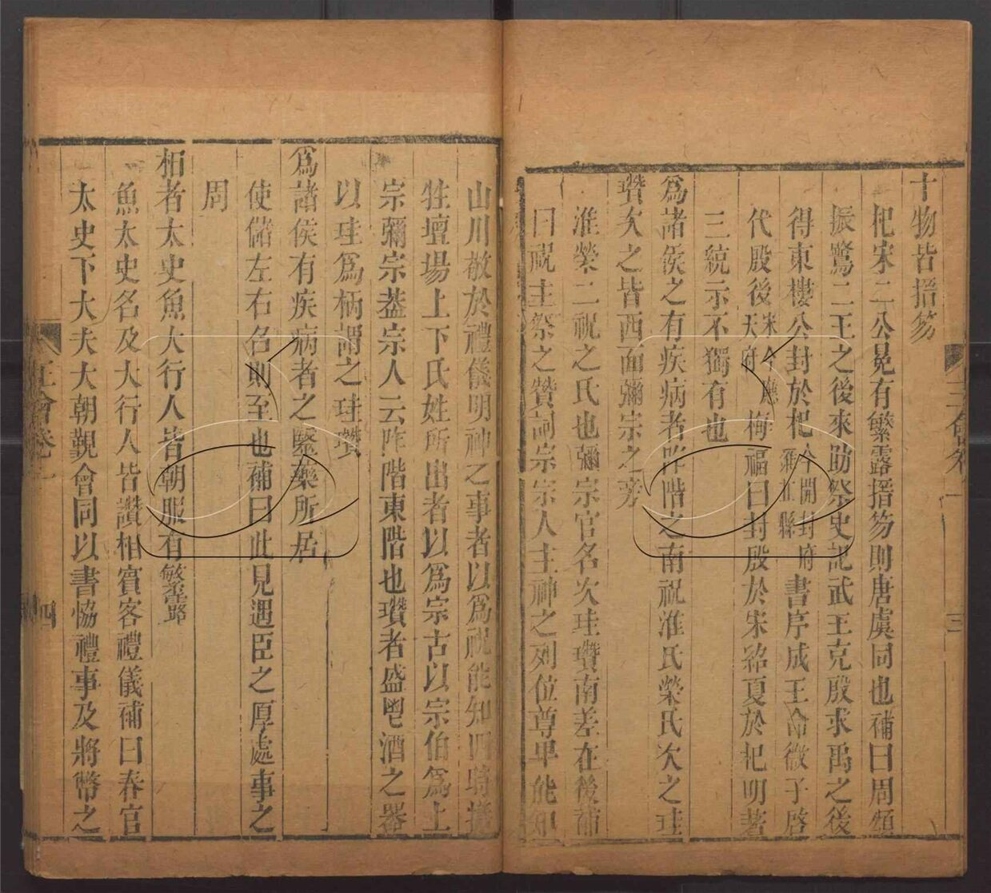 十物皆搢笏
杞宋二公冕有繁露搢笏則唐虞同也補曰周頌
振鷺二王之後來助祭史記武王克殷求禹之後
得東樓公封於杞今開封府雍丘縣書序成王命微子啓
代殷後宋今應天府梅福曰封殷於宋紹夏於杞明著
三統示不獨有也
爲諸侯之有疾病者阼階之南祝淮氏榮氏次之珪
瓚次之皆西面彌宗之旁
淮榮二祝之氏也彌宗官名次珪瓚南差在後補
曰祝主祭之贊詞宗宗人主神之列位尊卑能知
山川敬於禮儀明神之事者以爲祝能知四時犧
牲壇場上下氏姓所出者以爲宗古以宗伯爲上
宗彌宗葢宗人云阼階東階也瓚者盛鬯酒之器
以珪爲柄謂之珪瓚
爲諸侯有疾病者之醫藥所居
使儲左右名則至也補曰此見遇臣之厚處事之
周
栢者太史魚大行人皆朝服有繁露
魚太史名及大行人皆讚相賓客禮儀補曰春官
太史下大夫大朝覲會同以書協禮事及將幣之
王會卷
三
王會卷
四